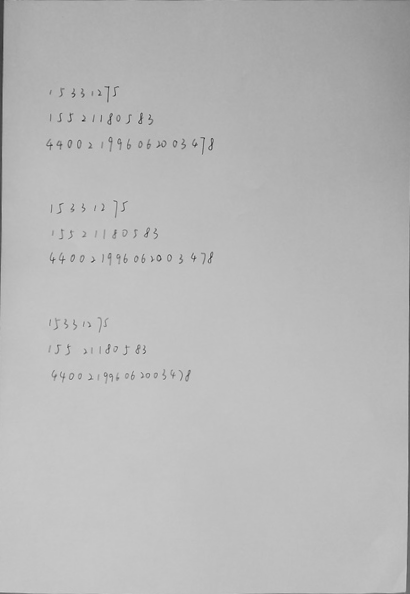 15331275
15521180583
440021996062003478
15331275
15521180583
440021996062003478
15331275
15521180583
440021996062003478